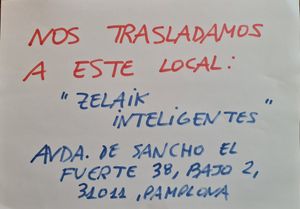 NOS TRASLADAMOS
A ESTE LOCAL:
"ZELAIK
INTELIGENTES"
AVDA. DE SANCHO EL
FUERTE 38, BAJO 2,
31011, PAMPLONA